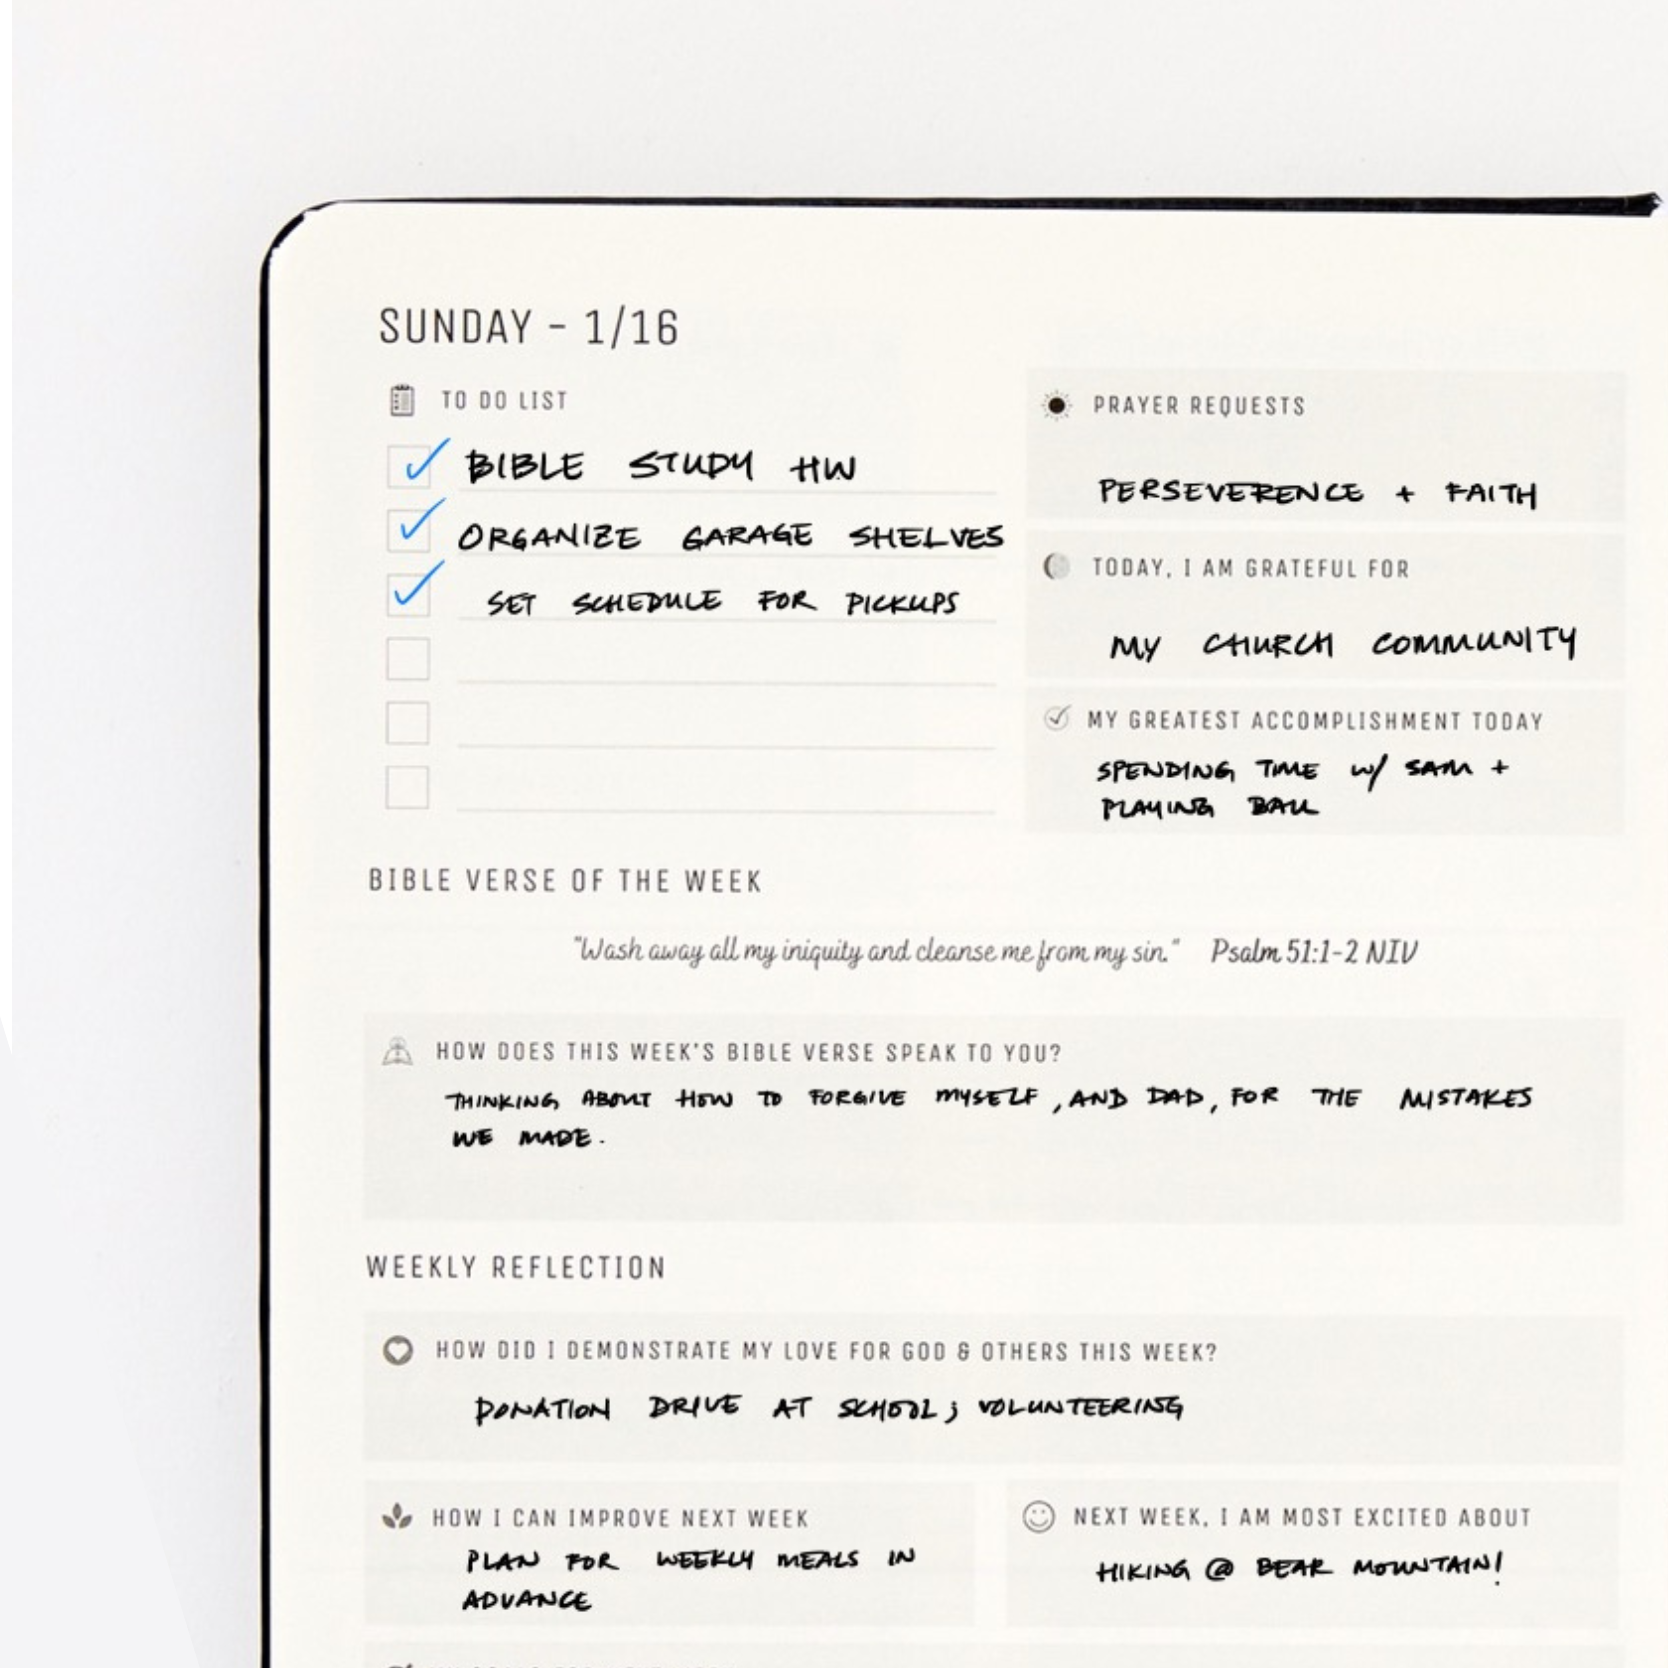 SUNDAY - 1/16
TO DO LIST
BIBLE STUDY HW
ORGANIZE GARAGE SHELVES
SET SCHEDULE FOR PICKUPS
PRAYER REQUESTS
PERSEVERENCE + FAITH
TODAY, I AM GRATEFUL FOR
MY CHURCH COMMUNITY
MY GREATEST ACCOMPLISHMENT TODAY
SPENDING TIME W/ SAM +
PLAYING BALL
BIBLE VERSE OF THE WEEK
"Wash away all my iniquity and cleanse me from my sin." Psalm 51:1-2 NIV
HOW DOES THIS WEEK'S BIBLE VERSE SPEAK TO YOU?
THINKING ABOUT HOW TO FORGIVE MYSELF, AND DAD, FOR THE MISTAKES
WE MADE.
WEEKLY REFLECTION
HOW DID I DEMONSTRATE MY LOVE FOR GOD & OTHERS THIS WEEK?
DONATION DRIVE AT SCHOOL; VOLUNTEERING
HOW I CAN IMPROVE NEXT WEEK
PLAN FOR WEEKLY MEALS IN
ADVANCE
NEXT WEEK, I AM MOST EXCITED ABOUT
HIKING @ BEAR MOUNTAIN!